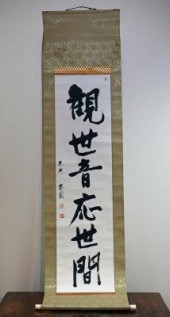 觀世音応世間